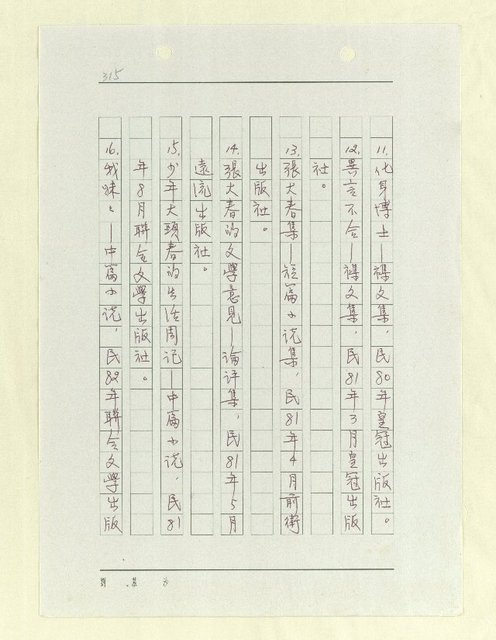 315
11.化身博士—襍文集,民80年皇冠出版社。
12.異言不合—襍文集,民81年3月皇冠出版
社。
13.張大春集—短篇小说集,民81年4月前衛
出版社。
14.張大春的文學意見—論评集,民81年5月
遠流出版社。
15.少年大頭春的生活周记—中篇小说,民81
年8月聯合文學出版社。
16.我妹々—中篇小说,民82年聯合文學出版
劉慕沙